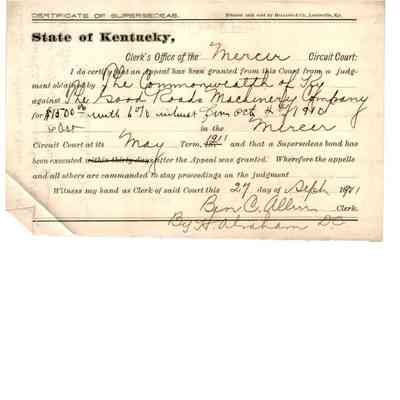 CERTIFICATE OF SUPERSEDEAS.
State of Kentucky,
Clerk's Office of the Mercer Circuit Court:
I do certify that an Appeal has been granted from this Court from a judg-
ment obtained by The Commonwealth of Ky
against The Good Roads Machinery Company
for $1500.00 with 6% interest from Oct
in the Mercer
Circuit Court at its May Term, 1911 and that a Supersedeas bond has
been executed within thirty days after the Appeal was granted. Wherefore the appelle
and all others are commanded to stay proceedings on the judgment
Witness my hand as Clerk of said Court this 27 day of Sept 1911
Ben C. Allin Clerk.
By H. Abraham DC